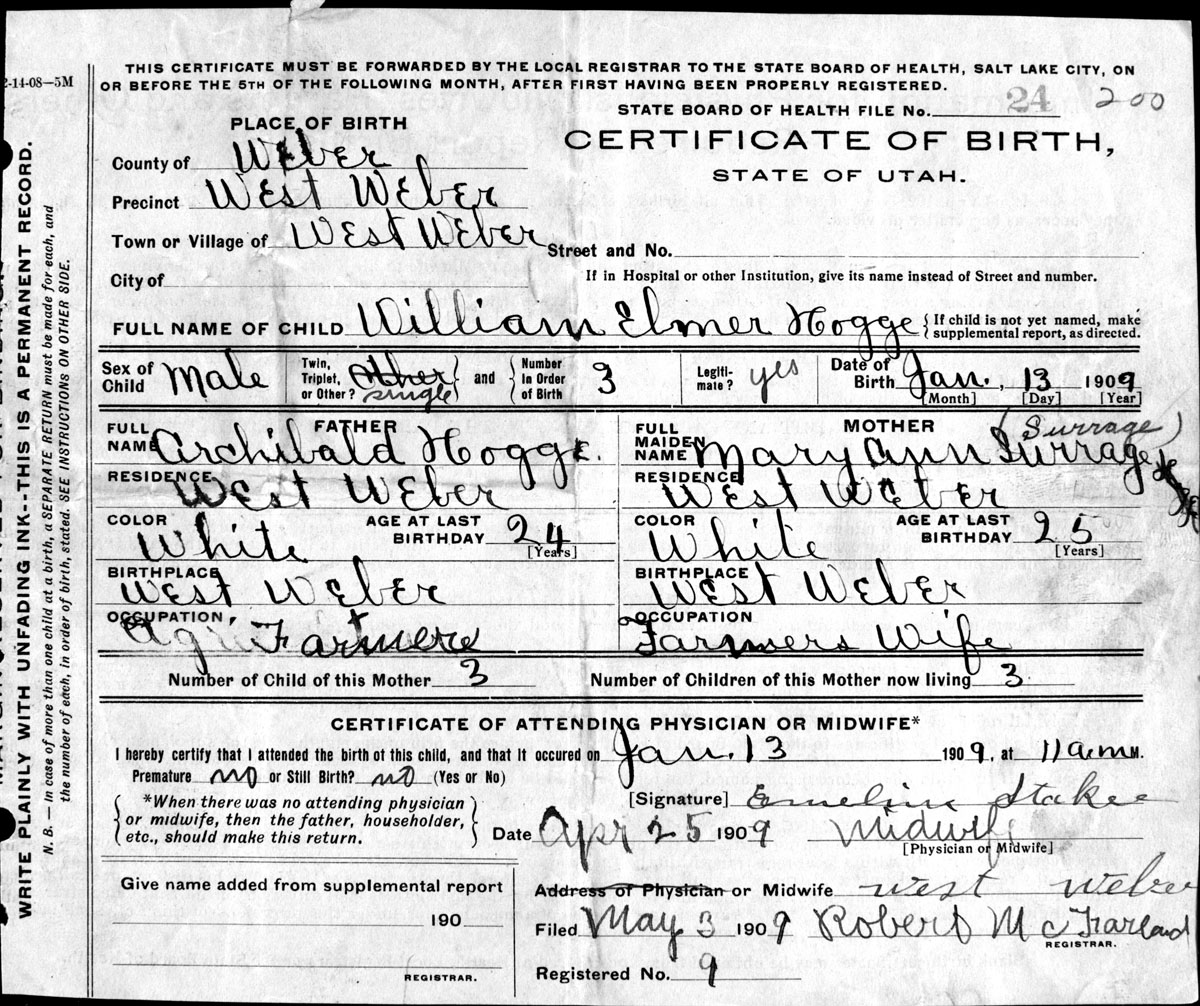 2-14-08—5M
THIS CERTIFICATE MUST BE FORWARDED BY THE LOCAL REGISTRAR TO THE STATE BOARD OF HEALTH, SALT LAKE CITY, ON
OR BEFORE THE 5TH OF THE FOLLOWING MONTH, AFTER FIRST HAVING BEEN PROPERLY REGISTERED.
STATE BOARD OF HEALTH FILE No. 24 200
PLACE OF BIRTH
CERTIFICATE OF BIRTH,
STATE OF UTAH.
County of Weber
Precinct West Weber
Town or Village of West Weber Street and No.
City of If in Hospital or other Institution, give its name instead of Street and number.
FULL NAME OF CHILD William Elmer Hogge { If child is not yet named, make
supplemental report, as directed.
Sex of Child Male Twin, Triplet, or Other? other single } and { Number in Order of Birth 3 Legiti-mate? yes Date of Birth Jan. 13 1909
[Month] [Day] [Year]
FATHER MOTHER (Surrage)
FULL NAME Archibald Hogge. FULL MAIDEN NAME Mary Ann Surrage
RESIDENCE West Weber RESIDENCE West Weber
COLOR White AGE AT LAST BIRTHDAY 24 [Years] COLOR White AGE AT LAST BIRTHDAY 25 [Years]
BIRTHPLACE West Weber BIRTHPLACE West Weber
OCCUPATION Farmer OCCUPATION Farmers Wife
Number of Child of this Mother 3 Number of Children of this Mother now living 3
CERTIFICATE OF ATTENDING PHYSICIAN OR MIDWIFE*
I hereby certify that I attended the birth of this child, and that it occured on Jan. 13 1909, at 11 a m M.
Premature no or Still Birth? no (Yes or No)
{ *When there was no attending physician or midwife, then the father, householder, etc., should make this return. }
[Signature] Emeline Stake
Date Apr 25 1909 Midwife
[Physician or Midwife]
Give name added from supplemental report
190
REGISTRAR.
Address of Physician or Midwife West Weber
Filed May 3 1909 Robert McFarland
REGISTRAR.
Registered No. 9
WRITE PLAINLY WITH UNFADING INK--THIS IS A PERMANENT RECORD.
N. B. — In case of more than one child at a birth, a SEPARATE RETURN must be made for each, and
the number of each, in order of birth, stated. SEE INSTRUCTIONS ON OTHER SIDE.